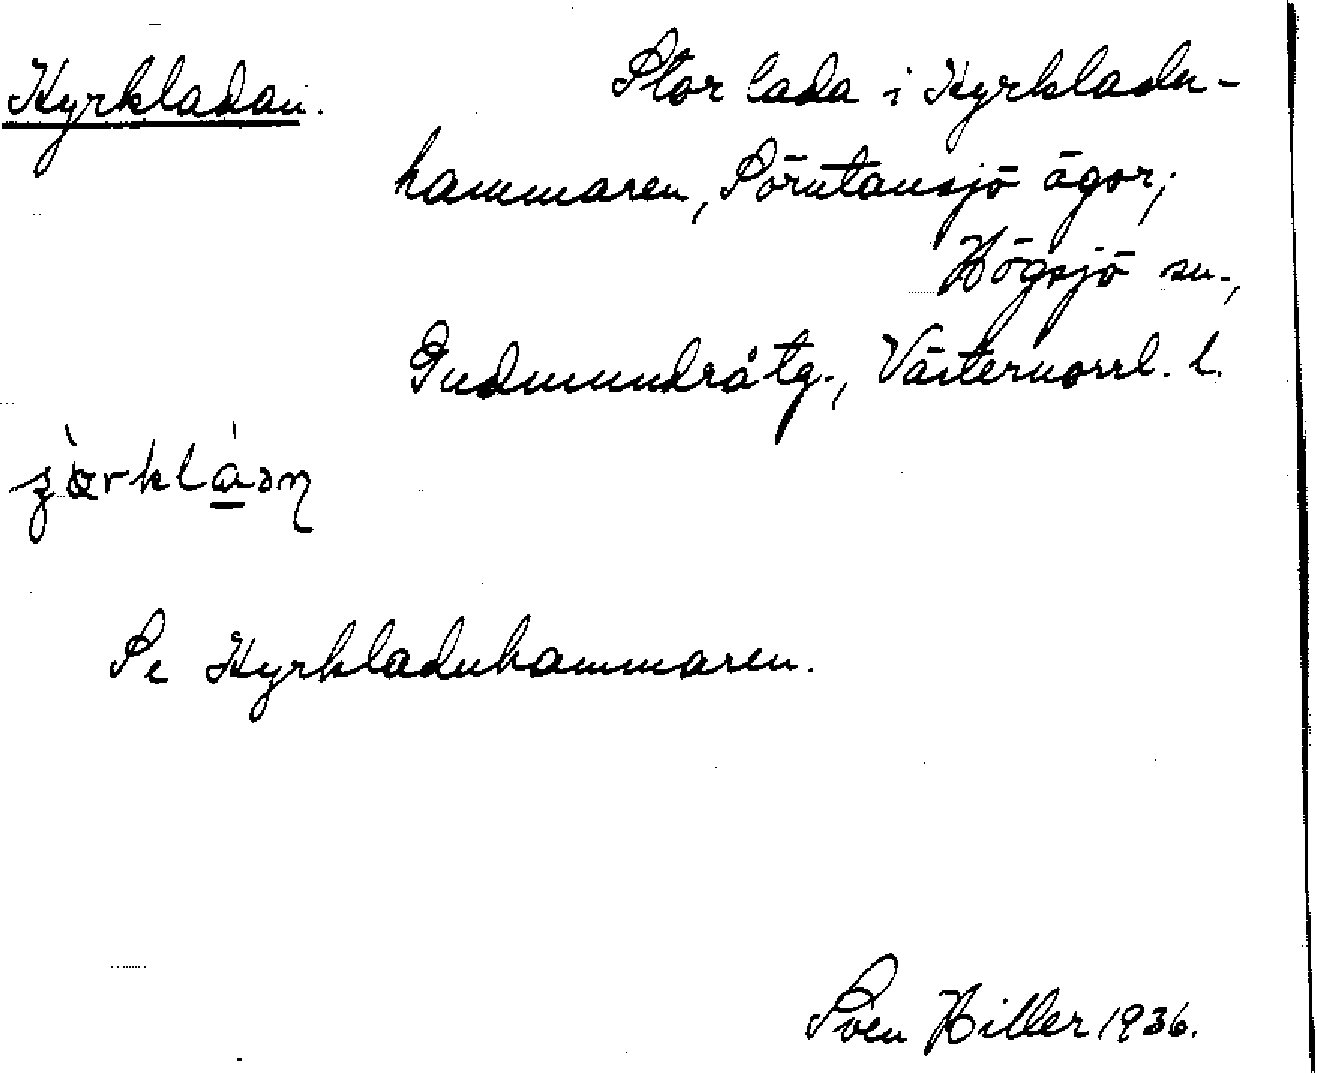 Kyrkladan. Stor lada i Kyrkladu-
hammaren, Sörutansjö ägor;
Högsjö sn.,
Gudmundrå tg., Västernorrl. l.
Se Kyrkladuhammaren.
Sven Hiller 1936.